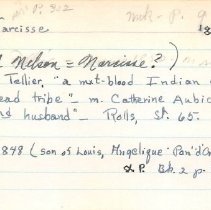 P. 302
mck - P. 9
Narcisse 18
Nelson = Narcisse?)
Tellier, "a mxt-blood Indian
ead tribe" - m. Catherine Aubic
nd husband" - Rolls, St. 65.
1848 (son of Louis, Angelique Pon'd'O
& P. Bk. 2 p.